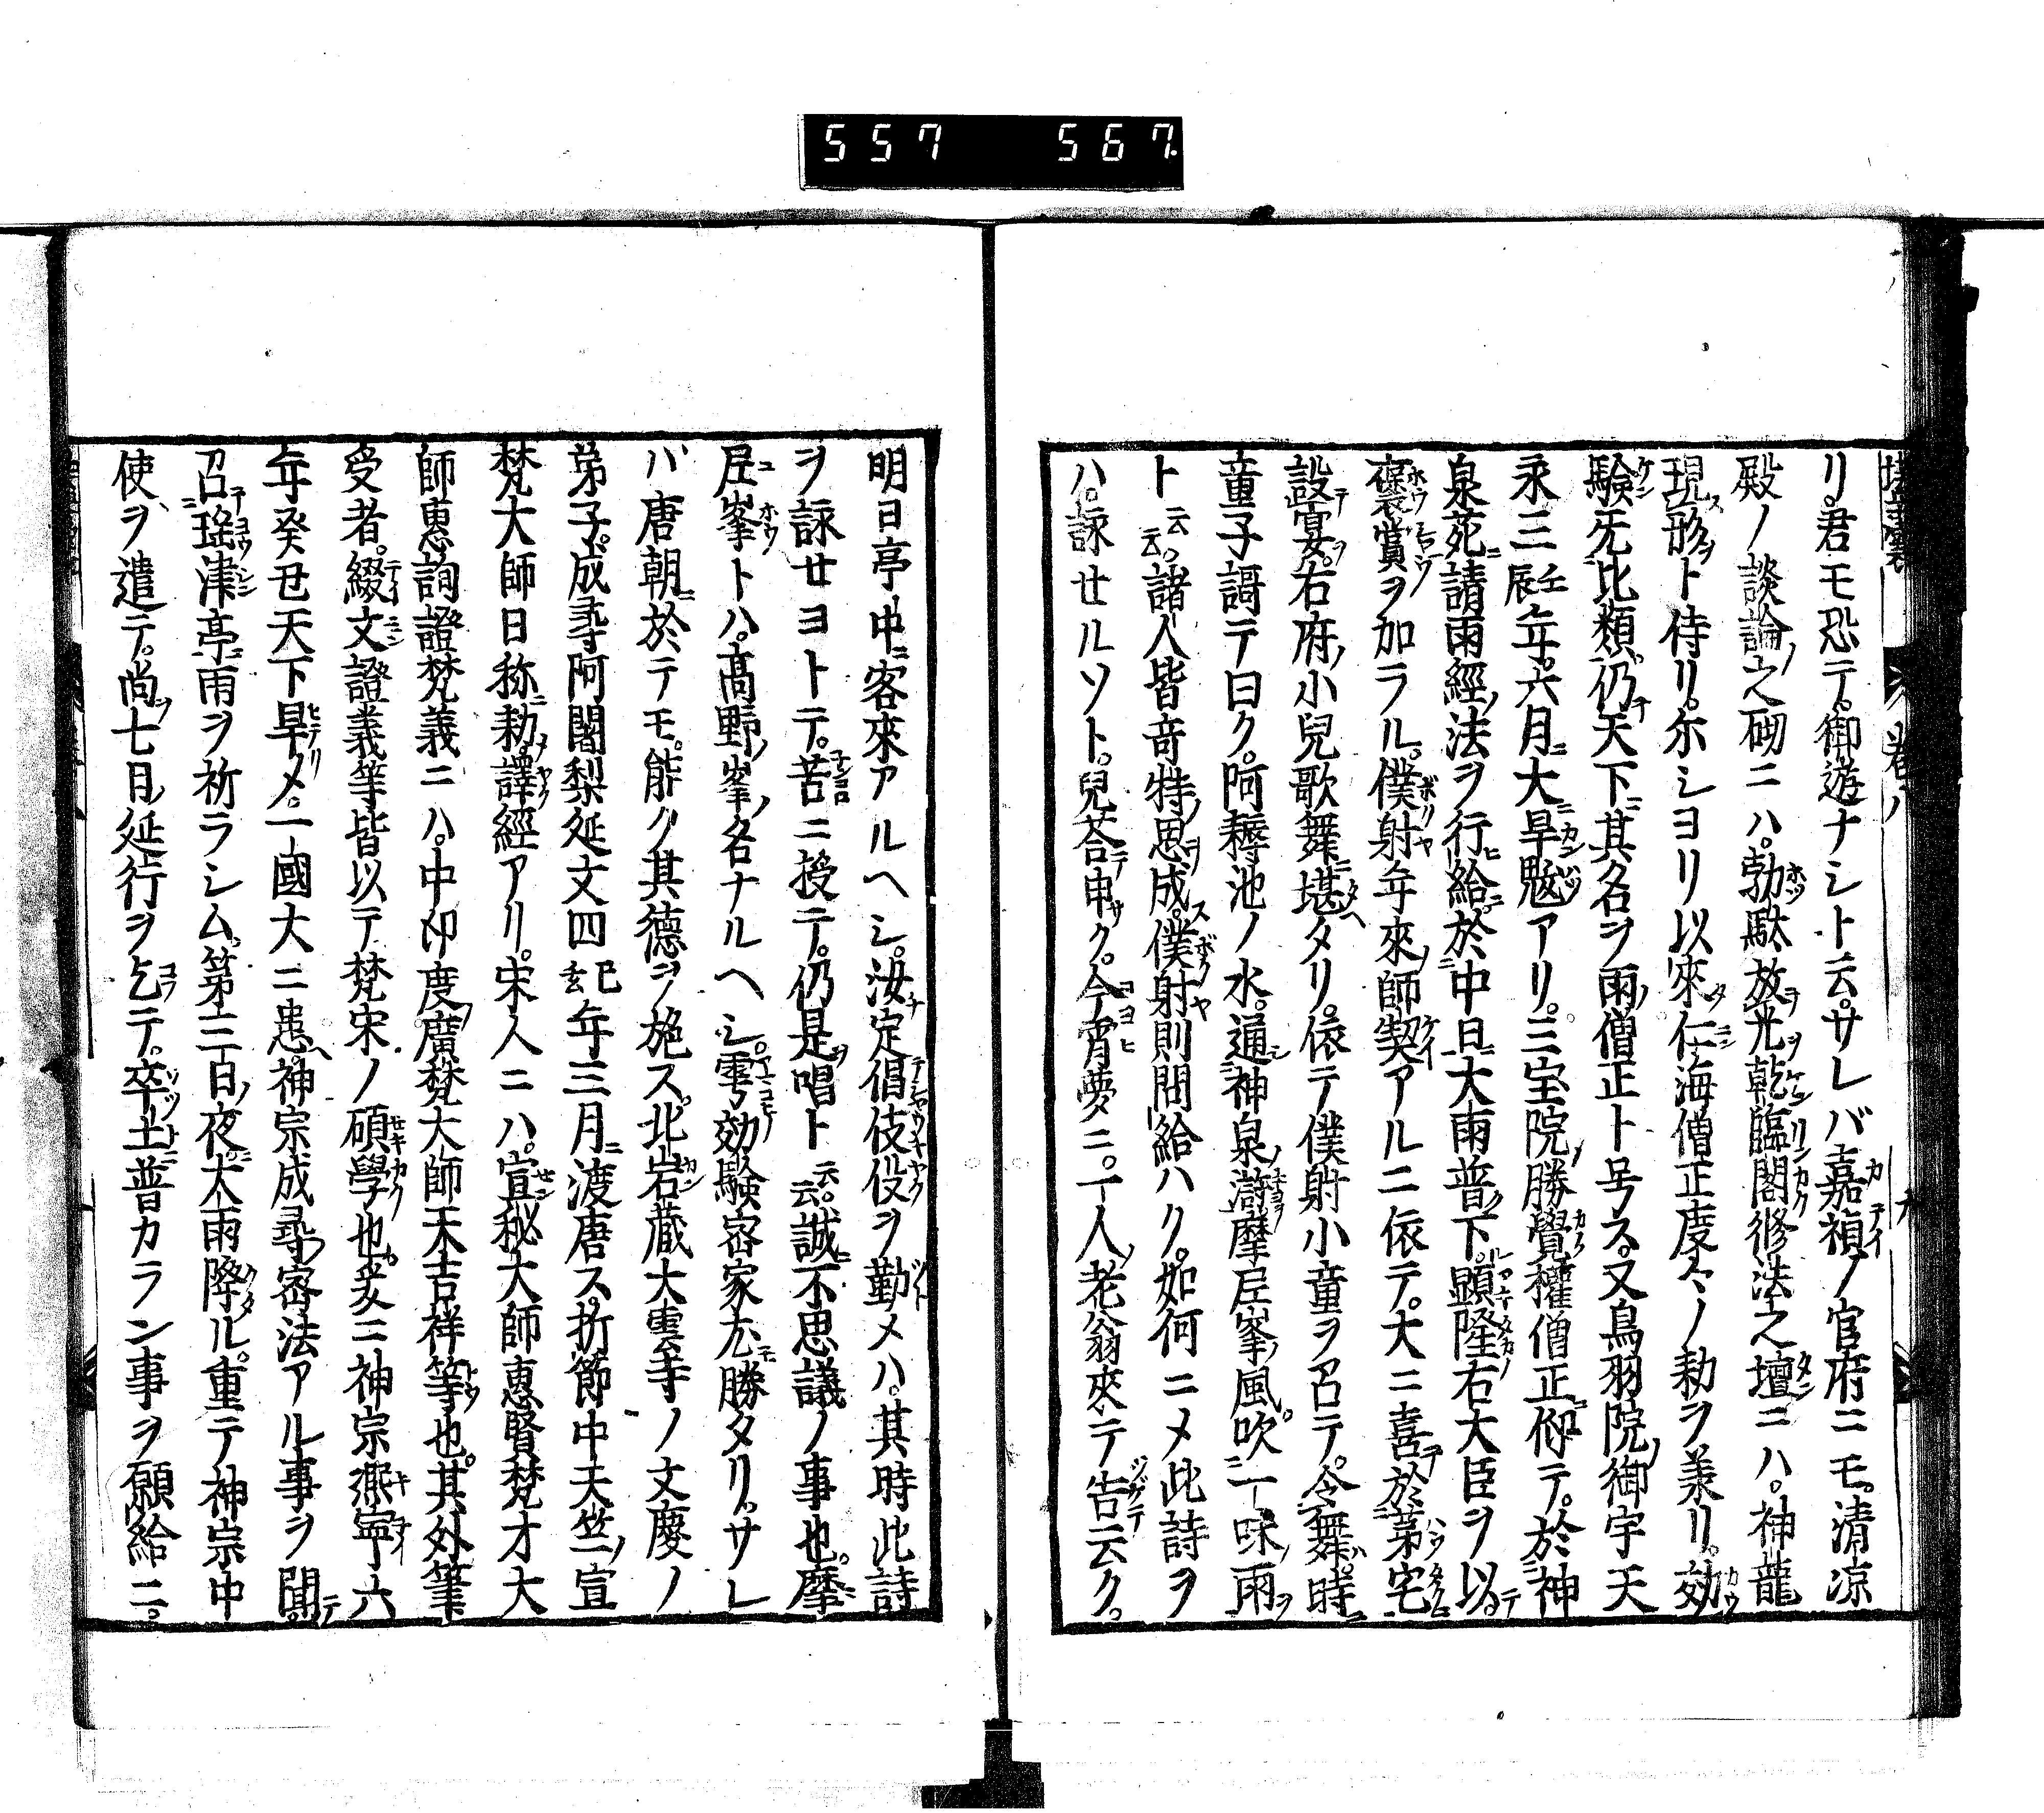 557 567
リ。君モ恐テ。御遊ナシト云。サレバ嘉禎ノ官府ニモ。清凉
殿ノ談論之砌ニハ。勃駄放光乾臨閣修法之壇ニハ。神龍
現形ト侍リ。尓シヨリ以來仁海僧正度々ノ勅ヲ羕リ。効
驗旡比類仍天下其名ヲ雨僧正ト号ス。又鳥羽院御宇天
永三壬辰年。六月大旱魃アリ。三宝院勝覺權僧正仰テ。於神
泉苑請雨經法ヲ行給。於中日大雨普下。顕隆右大臣ヲ以。
褒賞ヲ加ラル。僕射年來師契アルニ依テ。大ニ喜於茅宅
設宴。右府小兒歌舞堪タリ。依テ僕射小童ヲ召テ。令舞。時
童子謌テ曰ク。阿耨池ノ水。通神泉。濤摩𡱝峯風。吹一味雨
ト云云。諸人皆竒特思成。僕射則問給ハク。如何ニメ此詩ヲ
ハ。詠せルソト。兒荅申ク。今宵夢ニ。一人老翁來テ告云ク。
明日亭中客來アルヘシ。汝定倡伎役ヲ勤メハ。其時此詩
ヲ詠せヨトテ。苦ニ授テ。仍是唱ト云云。誠不思議ノ事也。摩
𡱝峯トハ。髙野峯名ナルヘシ。雩効験宻家尤勝タリ。サレ
バ唐朝於テモ。能ク其德ヲ施ス。北岩蔵大雲寺ノ文慶ノ
弟子。成尋阿闍梨延文四己亥年三月渡唐ス。折節中天竺宣
梵大師日称勅譯經アリ。宋人ニハ。宣秘大師恵賢梵才大
師恵詢證梵義ニハ。中印度廣梵大師天吉祥等也。其外筆
受者。綴文證義等皆以テ梵宋ノ碩學也。爰ニ神宗熈寧六
年癸丑天下旱メ。一國大ニ患。神宗成尋宻法アル事ヲ聞。
召瑤津亭雨ヲ祈ラシム。第三日夜。大雨降ル。重テ神宗中
使ヲ遣テ。尚七日延行ヲ乞テ。卒土普カラン事ヲ願給ニ。